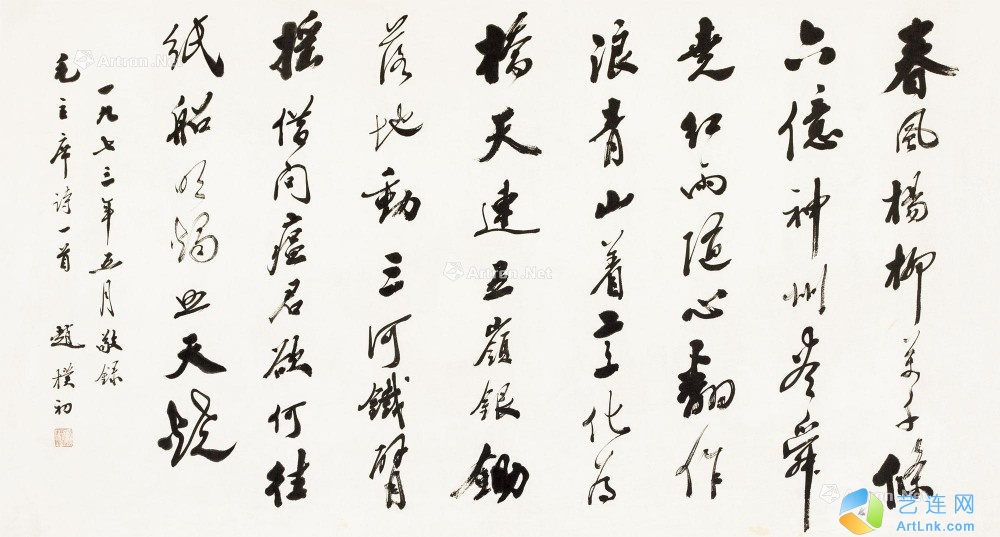 春風楊柳萬千條
六億神州盡舜
堯紅雨隨心翻作
浪青山着意化為
橋天連五嶺銀鋤
落地動三河鐵臂
搖借問瘟君欲何往
紙船明燭照天燒
一九七三年五月敬錄
毛主席詩一首 趙樸初
Artron.Net
Artron.Net
Artron.Net
艺连网
ArtLnk.com